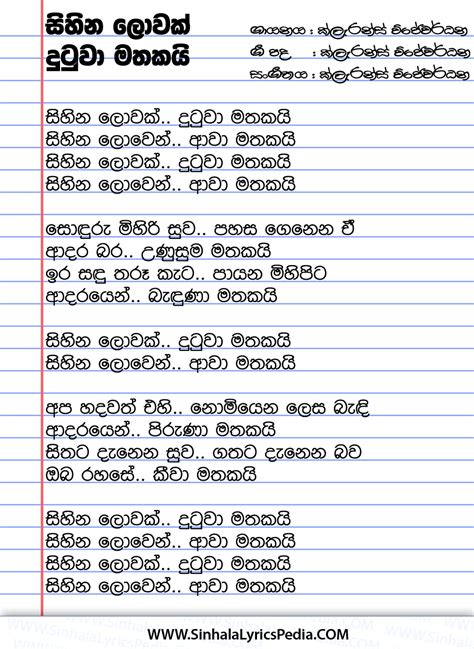 සිහින ලොවක්
දුටුවා මතකයි
ගායනය : ක්ලැරන්ස් විජේවර්ධන
ගී පද : ක්ලැරන්ස් විජේවර්ධන
සංගීතය : ක්ලැරන්ස් විජේවර්ධන
සිහින ලොවක්.. දුටුවා මතකයි
සිහින ලොවෙන්.. ආවා මතකයි
සිහින ලොවක්.. දුටුවා මතකයි
සිහින ලොවෙන්.. ආවා මතකයි
සොඳුරු මිහිරි සුව.. පහස ගෙනෙන ඒ
ආදර බර.. උණුසුම මතකයි
ඉර සඳු තරු කැට.. පායන මිහිපිට
ආදරයෙන්.. බැඳුණා මතකයි
සිහින ලොවක්.. දුටුවා මතකයි
සිහින ලොවෙන්.. ආවා මතකයි
අප හදවත් එහි.. නොමියෙන ලෙස බැඳි
ආදරයෙන්.. පිරුණා මතකයි
සිතට දැනෙන සුව.. ගතට දැනෙන බව
ඔබ රහසේ.. කීවා මතකයි
සිහින ලොවක්.. දුටුවා මතකයි
සිහින ලොවෙන්.. ආවා මතකයි
සිහින ලොවක්.. දුටුවා මතකයි
සිහින ලොවෙන්.. ආවා මතකයි
WWW.SinhalaLyricsPedia.COM